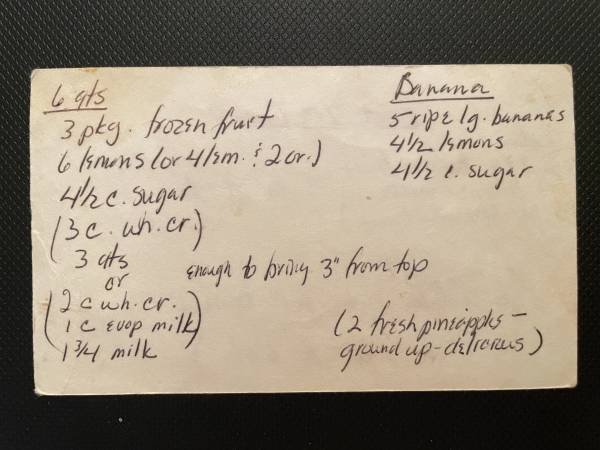 6 qts
3 pkg. frozen fruit
6 lemons (or 4 lem. & 2 or.)
4 1/2 c. sugar
(3 c. wh. cr.)
3 qts
or
enough to bring 3" from top
(2 c wh. cr.
1 c evap milk)
1 3/4 milk
Banana
5 ripe lg. bananas
4 1/2 lemons
4 1/2 c. sugar
(2 fresh pineapples -
ground up - delicious)